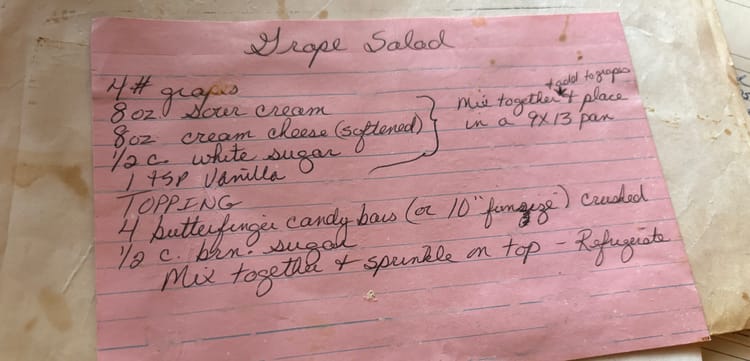 Grape Salad
4# grapes
8 oz sour cream
8 oz cream cheese (softened)
1/2 c. white sugar
1 tsp Vanilla
+ add to grapes
Mix together & place
in a 9x13 pan
TOPPING
4 butterfinger candy bars (or 10 "funsize") crushed
1/2 c. brn. sugar
Mix together & sprinkle on top - Refrigerate